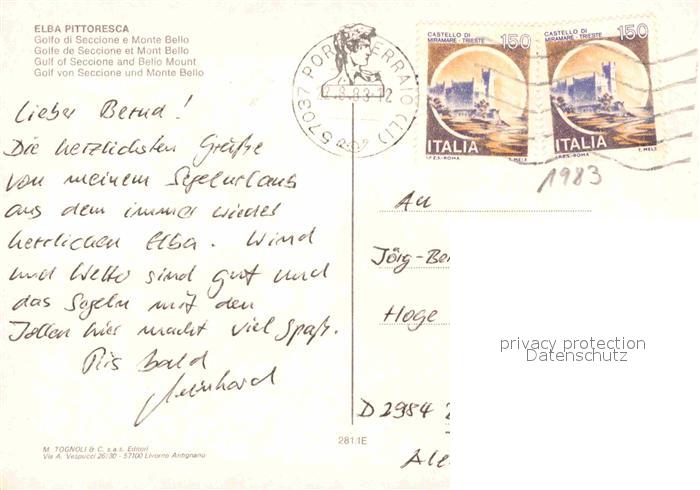 ELBA PITTORESCA
Golfo di Seccione e Monte Bello
Golfe de Seccione et Mont Bello
Gulf of Seccione and Bello Mount
Golf von Seccione und Monte Bello
57037 PORTOFERRAIO (LI)
2.8.83-12
CASTELLO DI
MIRAMARE - TRIESTE
150
ITALIA
I.P.Z.S.-ROMA
T. MELE
CASTELLO DI
MIRAMARE - TRIESTE
150
ITALIA
I.P.Z.S.-ROMA
T. MELE
1983
Lieber Bernd!
Die herzlichsten Grüße
von meinem Segelurlaub
aus dem immer wieder
herrlichen Elba. Wind
und Wetter sind gut und
das Segeln mit den
Jollen hier macht viel Spaß.
Bis bald
Meinhard
An
Jörg-Be
Hoge
D 2984
Ale
privacy protection
Datenschutz
M. TOGNOLI & C. s.a.s. Editori
Via A. Vespucci 26/30 - 57100 Livorno Antignano